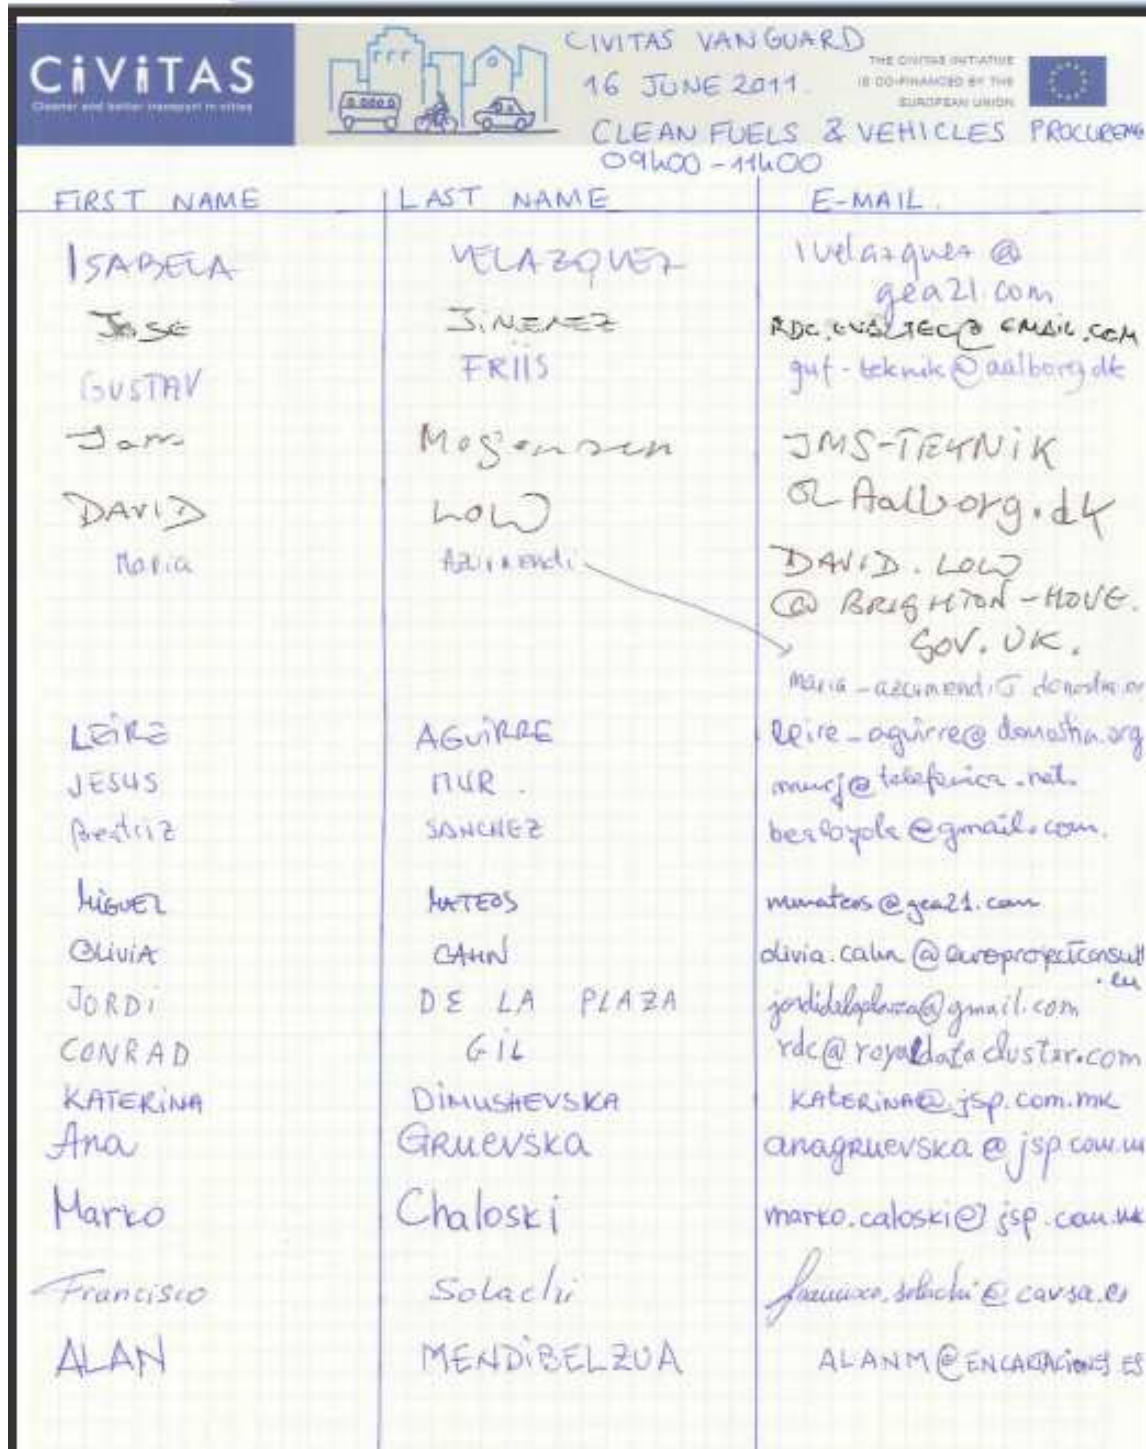 CiViTAS
Cleaner and better transport in cities
CIVITAS VANGUARD
THE CIVITAS INITIATIVE
IS CO-FINANCED BY THE
EUROPEAN UNION
16 JUNE 2011.
CLEAN FUELS & VEHICLES PROCUREME
09h00-11h00
FIRST NAME LAST NAME E-MAIL.
ISABELA VELAZQUEZ ivelazquez @
gea21.com
JOSE JiMENEZ @ GMAiL.COM
GUSTAV FRIIS guf-teknik@aalborg.dk
Jan Mogensen JMS-TEKNiK
@ Aalborg.dk
DAVID LOW
DAVID. LOW
@ BRIGHTON-HOVE.
GOV. UK.
Maria Azurmendi
maria_azurmendi@
LEiRE AGUiRRE leire_aguirre@donostia.org
JESUS MUR. murj@telefonica.net.
Beatriz SANCHEZ bealoyola@gmail.com.
MiGUEL MATEOS mmateos@gea21.com
OLiViA CAHN olivia.cahn@europrojectconsult
.eu
JORDi DE LA PLAZA jordidelaplaza@gmail.com
CONRAD GIL rdc@royaldatacluster.com
KATERiNA DiMUSHEVSKA KATERiNA@jsp.com.mk
Ana GRuevska anagruevska@jsp.com.m
Marko Chaloski marko.caloski@jsp.com.mk
Francisco Solachi francisco.solachi@cavsa.es
ALAN MENDiBELZUA ALANM@ENCARTACIONES.ES